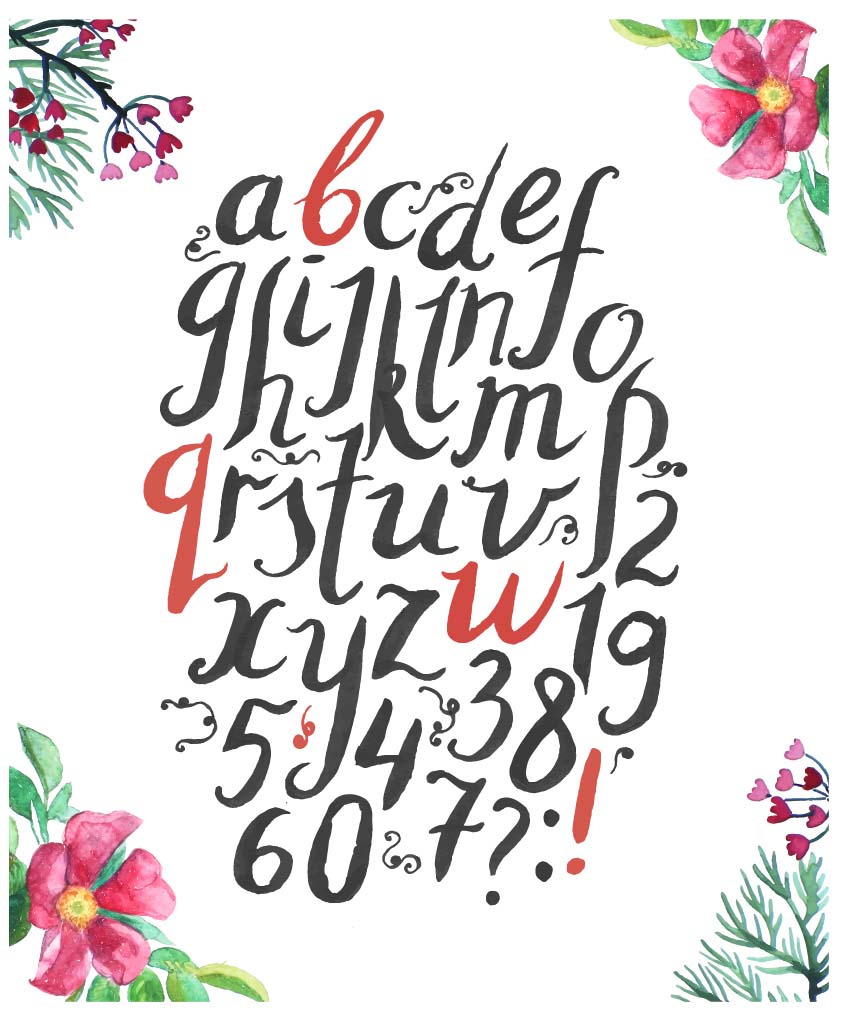 abcdef
ghijklnfo
kmp
qrstuv2
xyzw19
5438
607?:!